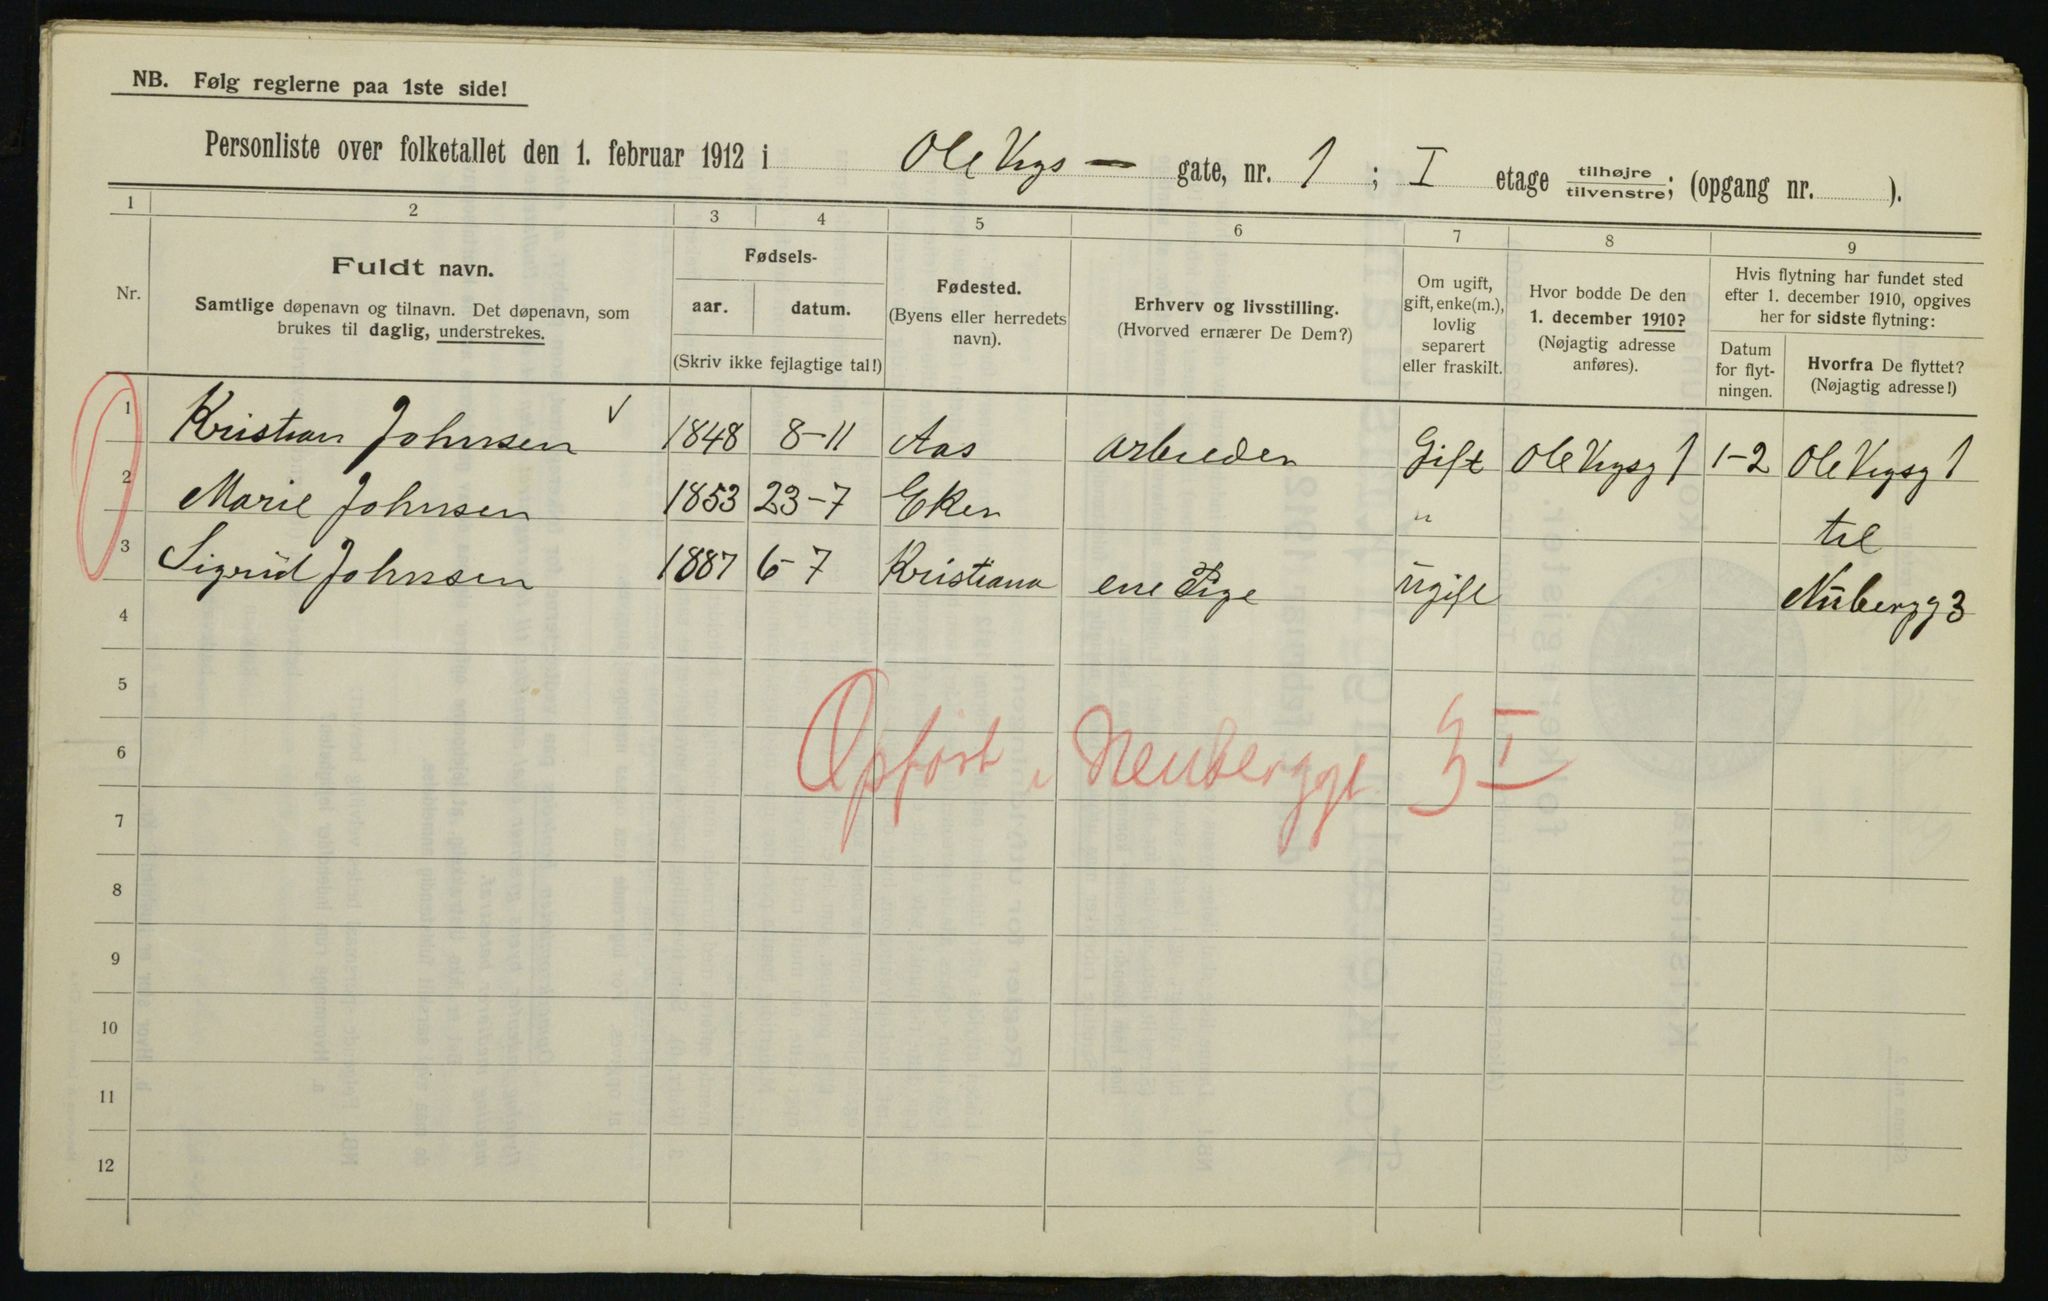 NB. Følg reglerne paa 1ste side!
Personliste over folketallet den 1. februar 1912 i Ole Vigs — gate, nr. 1 ; I etage tilhøjre/tilvenstre; (opgang nr. ).
1 2 3 4 5 6 7 8 9
Nr.
Fuldt navn.
Samtlige døpenavn og tilnavn. Det døpenavn, som
brukes til daglig, understrekes.
Fødsels-
aar. datum.
(Skriv ikke fejlagtige tal!)
Fødested.
(Byens eller herredets
navn).
Erhverv og livsstilling.
(Hvorved ernærer De Dem?)
Om ugift,
gift, enke(m.),
lovlig
separert
eller fraskilt.
Hvor bodde De den
1. december 1910?
(Nøjagtig adresse
anføres).
Hvis flytning har fundet sted
efter 1. december 1910, opgives
her for sidste flytning:
Datum
for flyt-
ningen.
Hvorfra De flyttet?
(Nøjagtig adresse!)
1 Kristian Johnsen √ 1848 8-11 Aas Arbeider Gift Ole Vigsg 1 1-2 Ole Vigsg 1
2 Marie Johnsen 1853 23-7 Eker " til
3 Sigrid Johnsen 1887 6-7 Kristiana Pige ugift Nübergg 3
4
5
6 Opført i Neuberggt 3 I
7
8
9
10
11
12